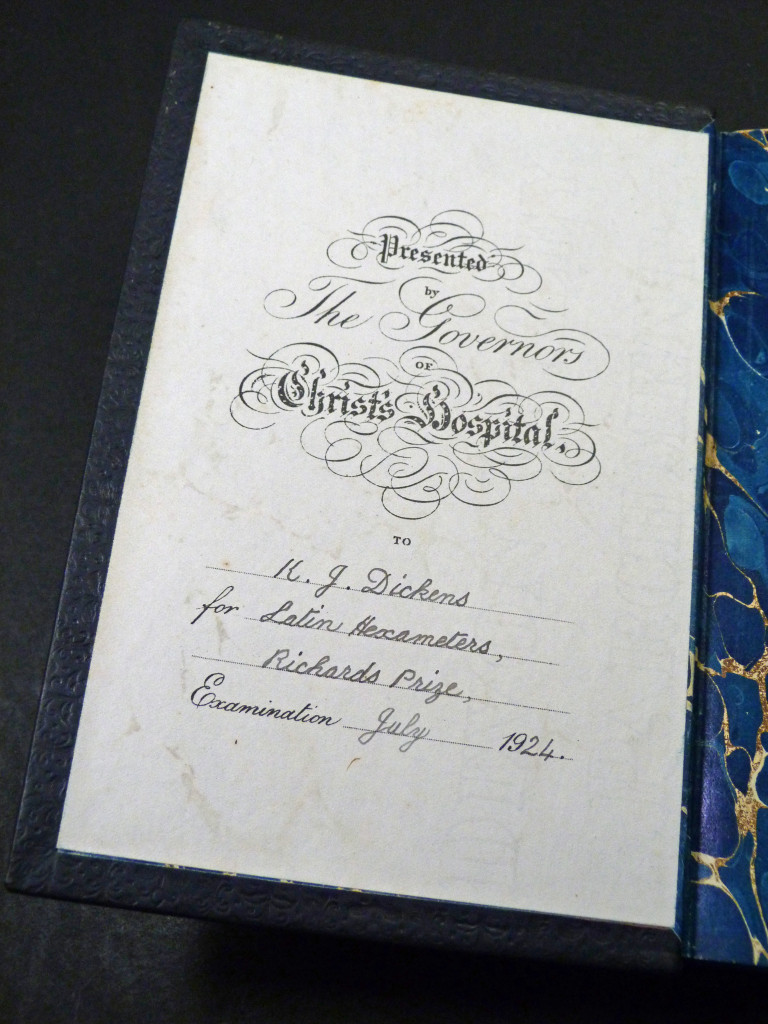 Presented
by
The Governors
OF
Christ's Hospital,
TO
K. J. Dickens
for Latin Hexameters,
Richards Prize,
Examination July 1924.